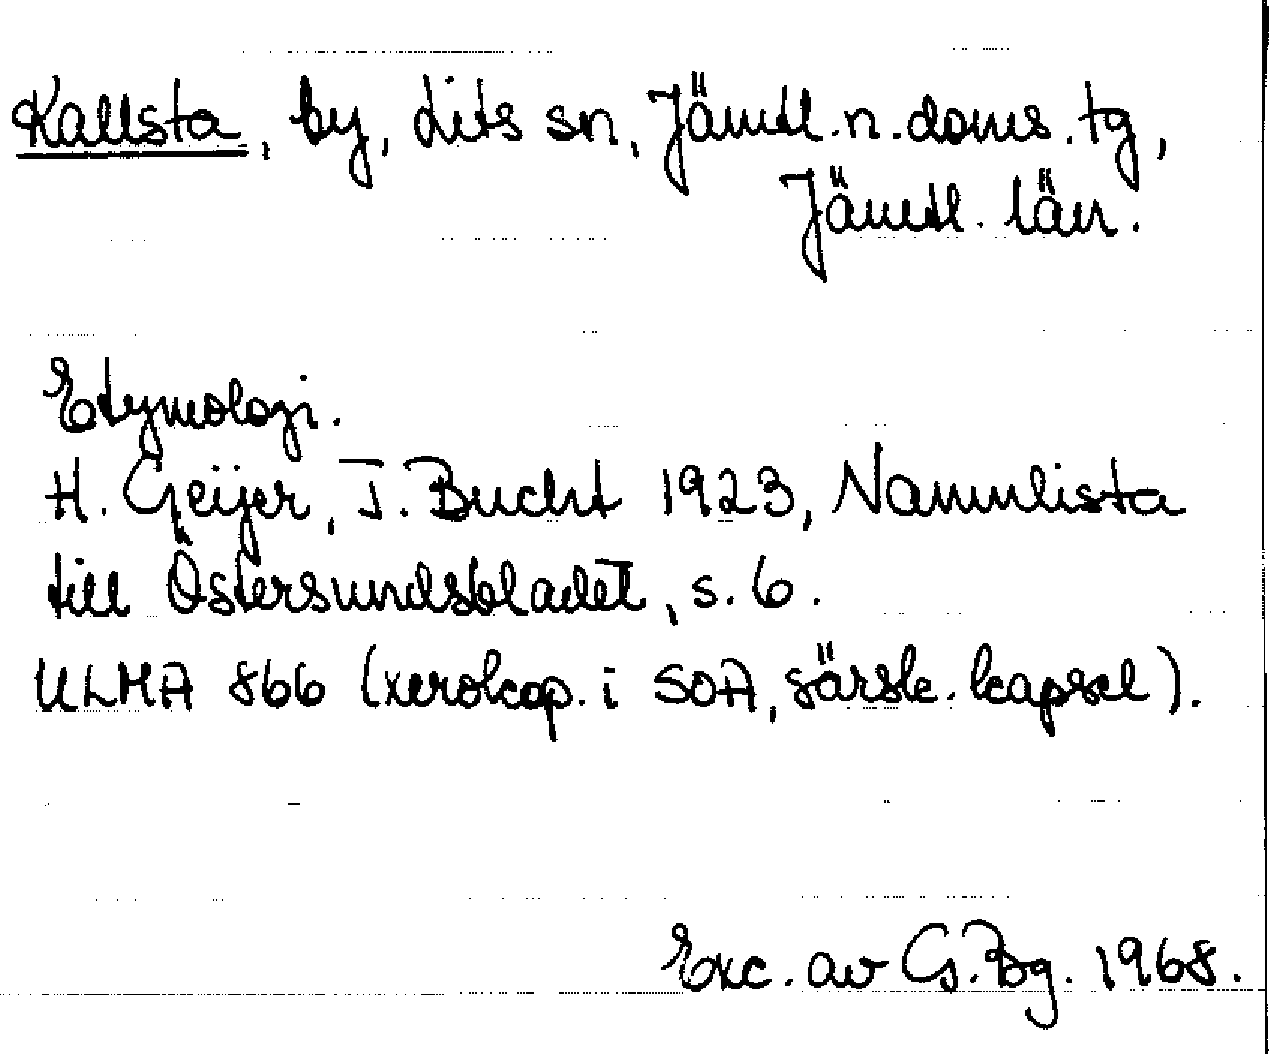 Kallsta, by, Lits sn, Jämtl. n. doms. tg,
Jämtl. län.
Etymologi.
H. Geijer, T. Bucht 1923, Namnlista
till Östersundsbladet, s. 6.
ULMA 866 (xerokop. i SOA, särsk. kapsel).
Exc. av G. Bg. 1968.